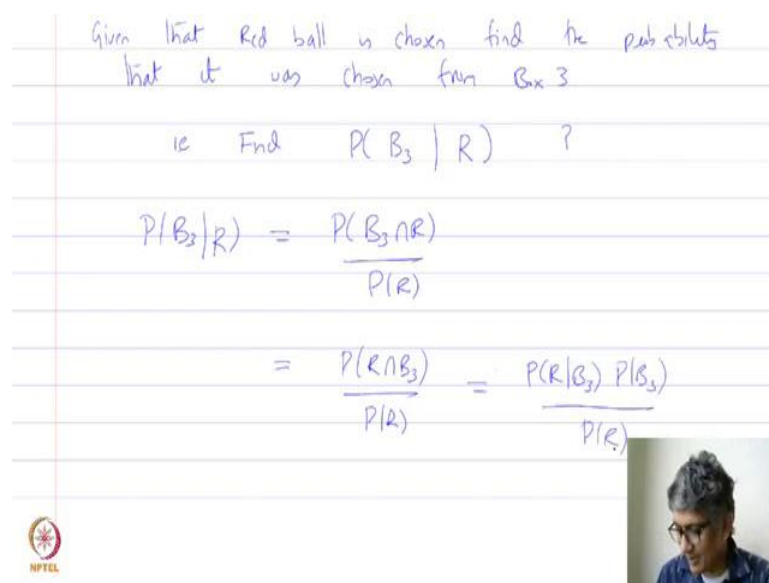 Given that Red ball is chosen find the probability
that it was chosen from Box 3
ie Find P( B₃ | R ) ?
P(B₃|R) = P(B₃∩R) / P(R)
= P(R∩B₃) / P(R) = P(R|B₃) P(B₃) / P(R)
NPTEL